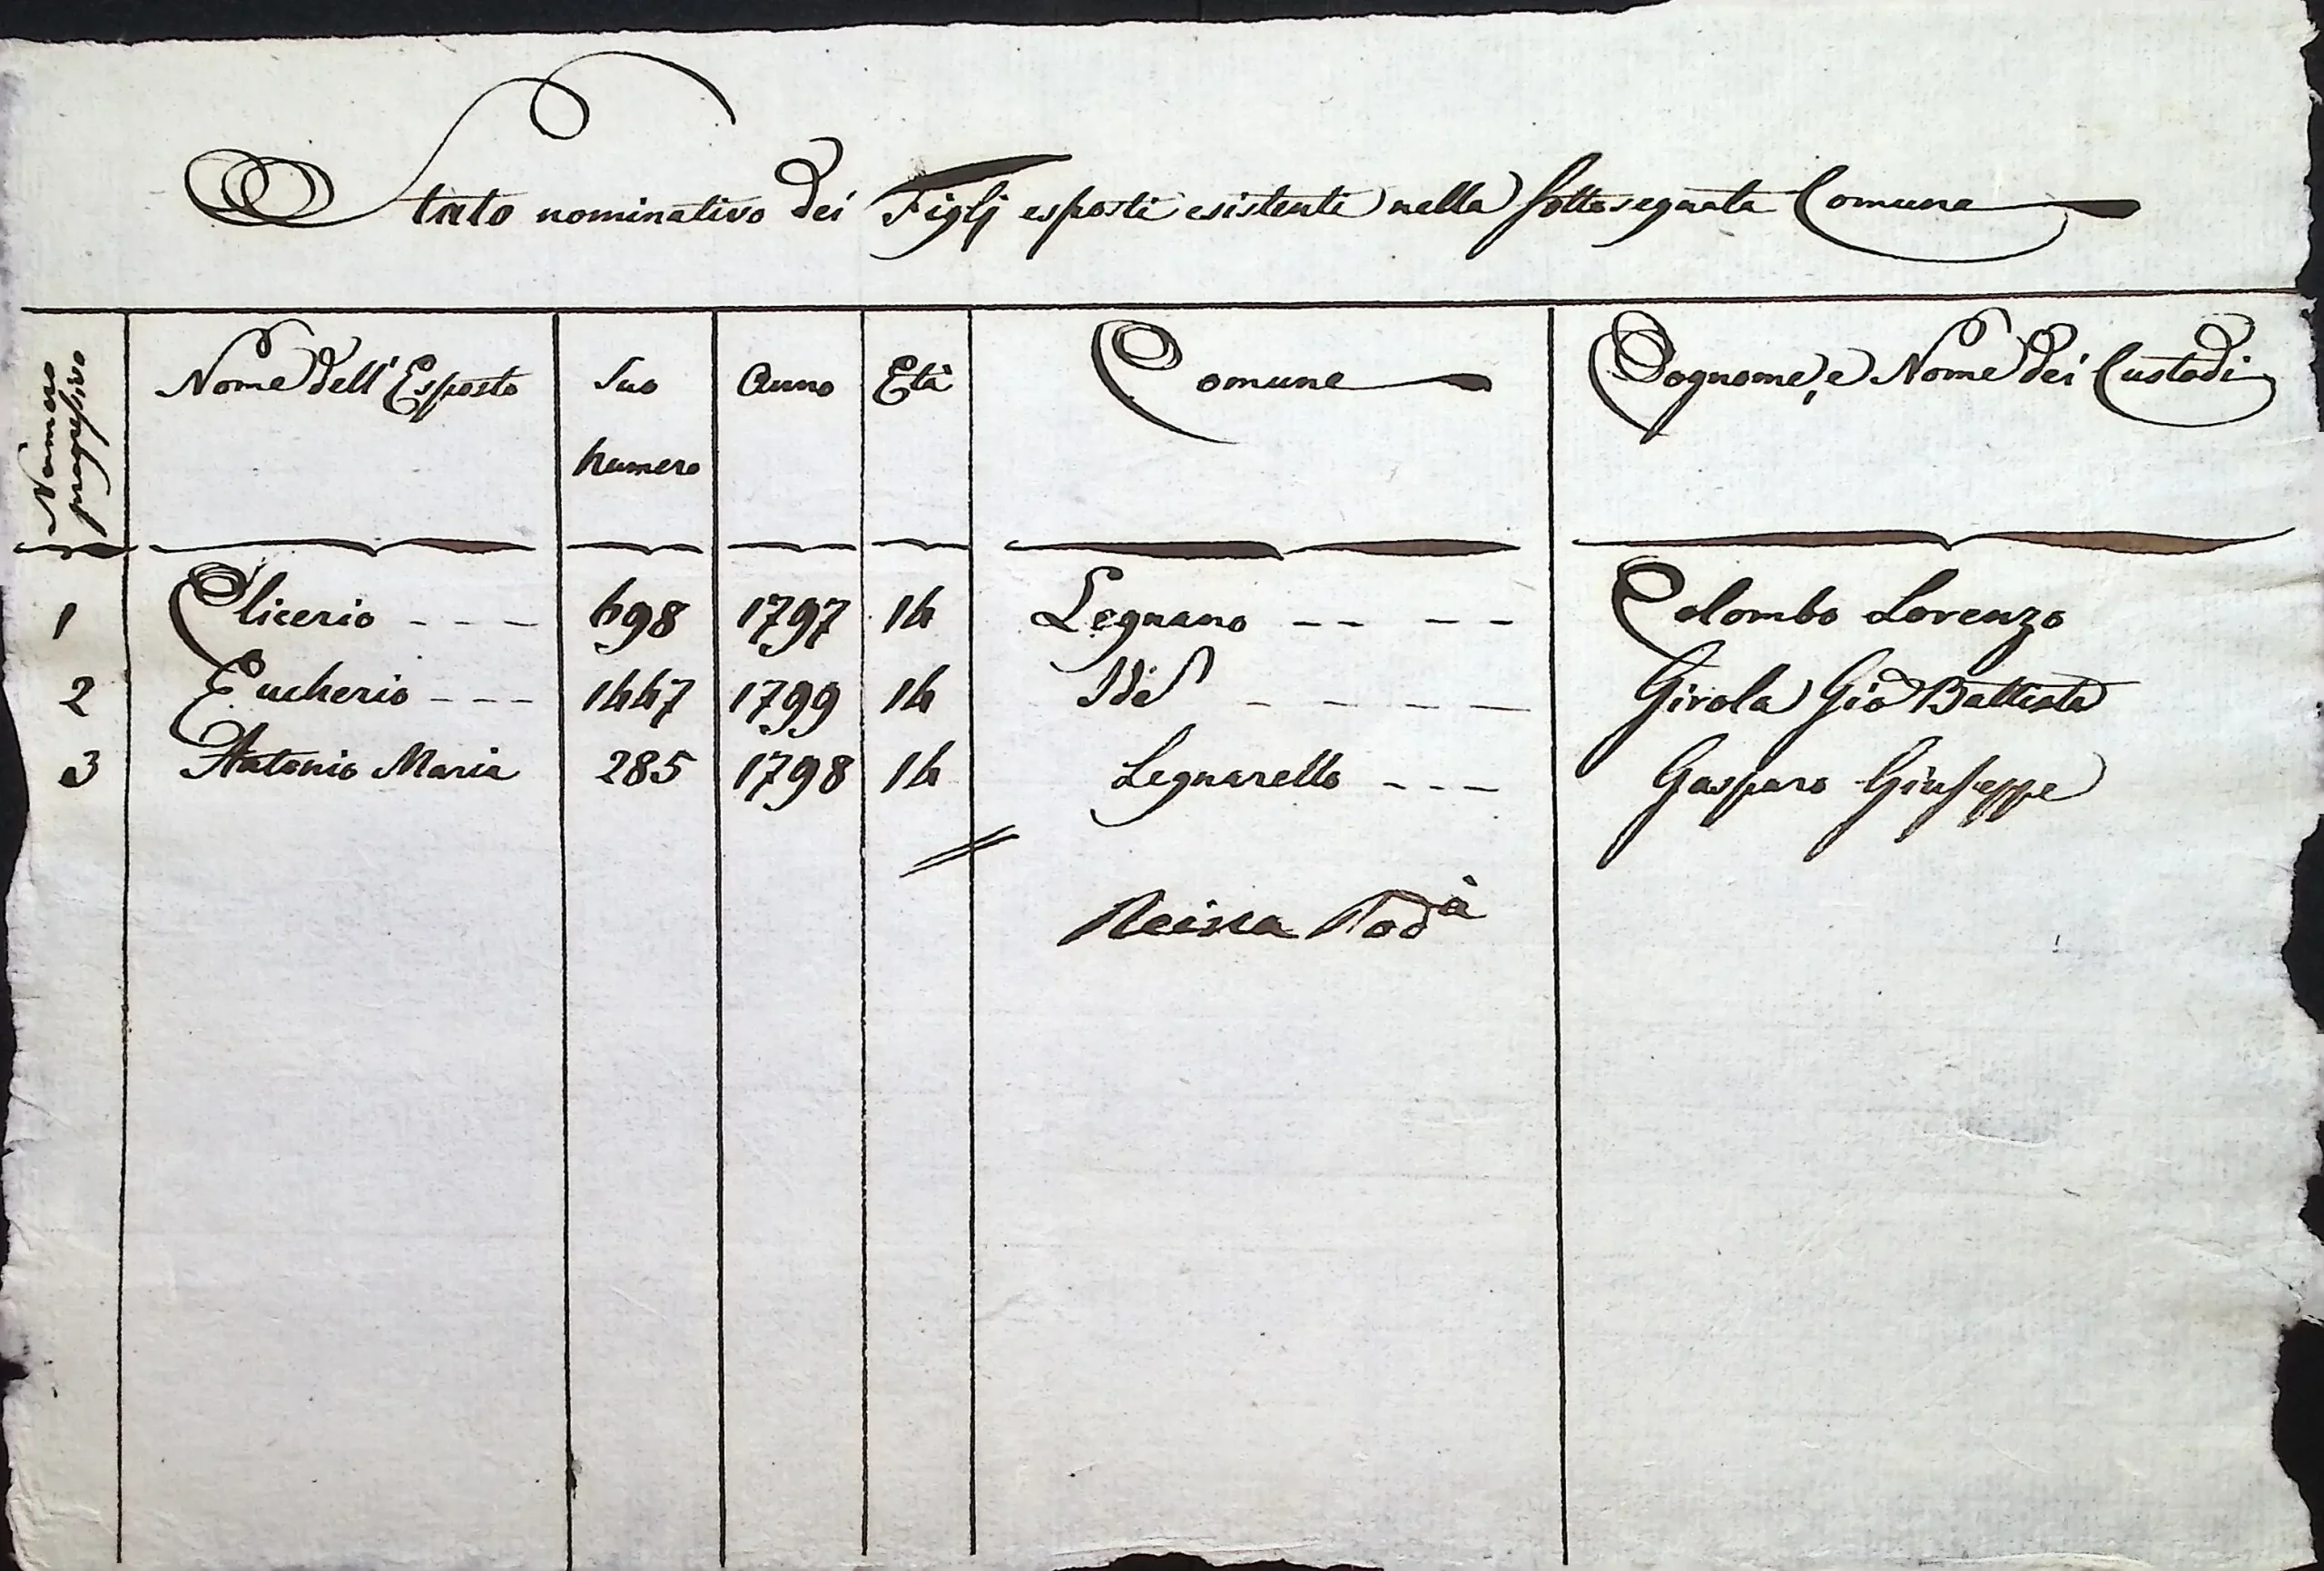 Stato nominativo dei Figlj esposti esistenti nella sottosegnata Comune
Numero progressivo | Nome dell'Esposto | Suo numero | Anno | Età | Comune | Cognome, e Nome dei Custodi
1 Clicerio - - - 498 1797 14 Legnano - - - - Colombo Lorenzo
2 Eucherio - - - 1447 1799 14 Idem - - - - - Girola Gio Battista
3 Antonio Maria 285 1798 14 Legnarello - - - Gasparo Giuseppe
Reina Podà